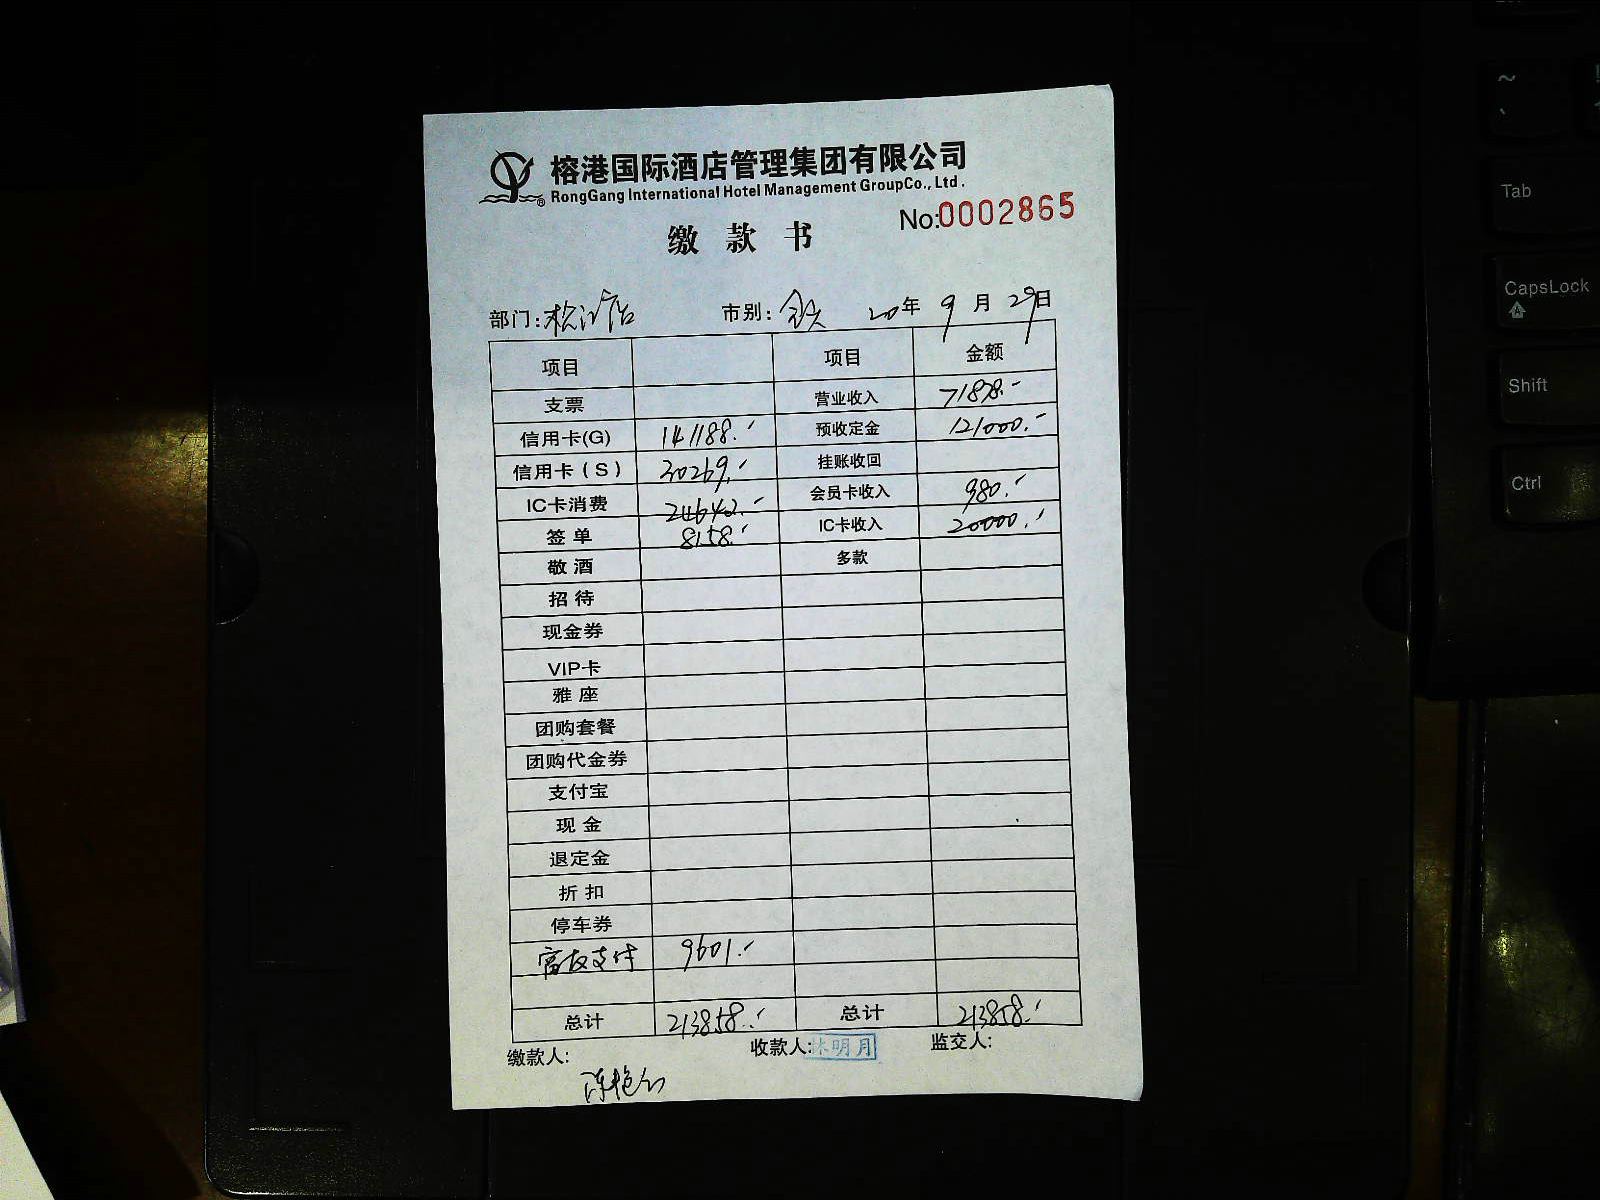 榕港国际酒店管理集团有限公司
RongGang International Hotel Management GroupCo., Ltd.
No:0002865
缴款书
部门: 市别: 20年 9月 29日
项目 项目 金额
支票 营业收入 71878.-
信用卡(G) 141188.- 预收定金 121000.-
信用卡(S) 30269.- 挂账收回
IC卡消费 24642.- 会员卡收入 980.-
签单 8158.- IC卡收入 20000.-
敬酒 多款
招待
现金券
VIP卡
雅座
团购套餐
团购代金券
支付宝
现金
退定金
折扣
停车券
富友支付 9601.-
总计 213858.- 总计 213858.-
缴款人: 收款人:林明月 监交人:
~
Tab
CapsLock
Shift
Ctrl